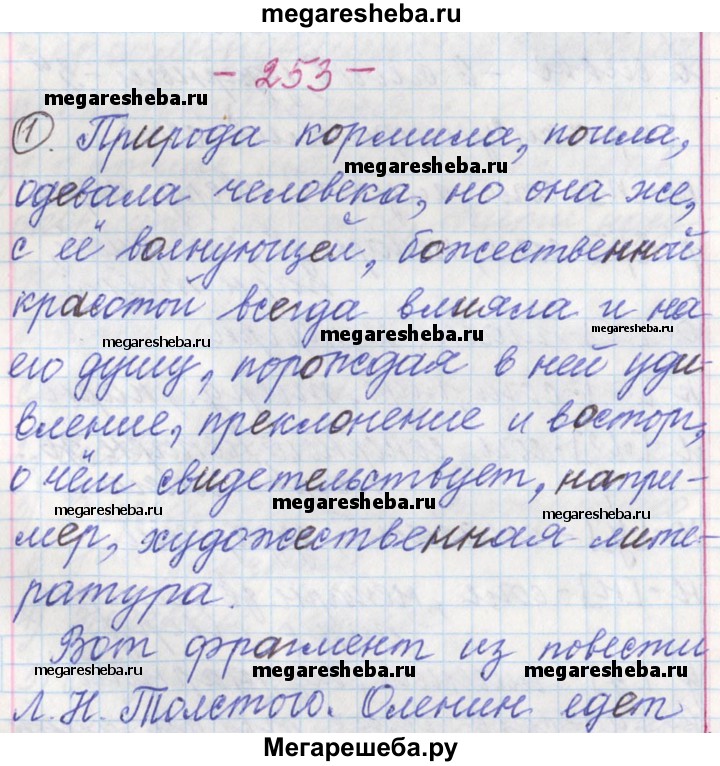 megaresheba.ru
- 253 -
megaresheba.ru
1. Природа кормила, поила,
megaresheba.ru
одевала человека, но она же,
с её волнующей, божественной
красотой всегда влияла и на
megaresheba.ru
megaresheba.ru
megaresheba.ru
его душу, порождая в ней уди-
вление, преклонение и восторг,
о чём свидетельствует, напри-
megaresheba.ru
megaresheba.ru
megaresheba.ru
мер, художественная лите-
ратура.
Вот фрагмент из повести
megaresheba.ru
megaresheba.ru
megaresheba.ru
Л. Н. Толстого. Оленин едет
Мегарешеба.ру